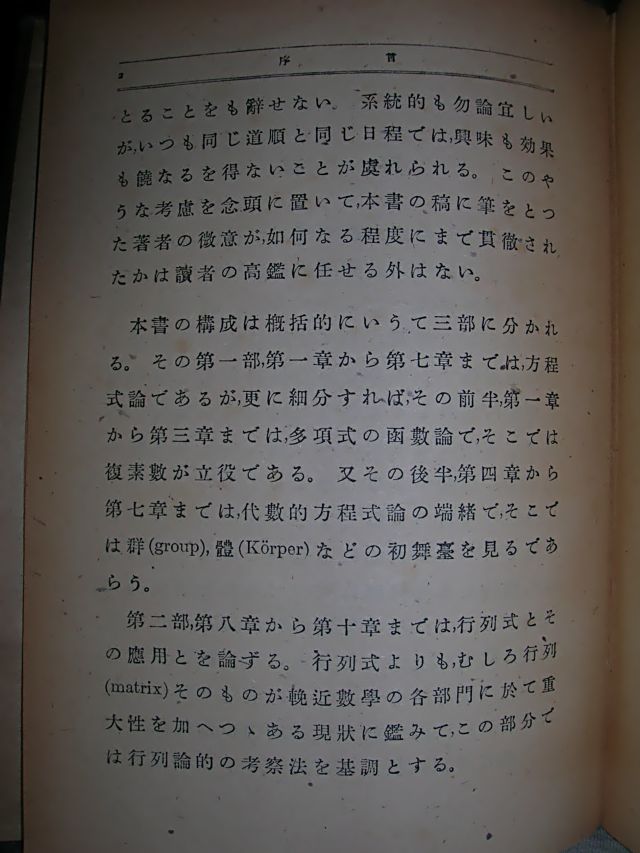 序言
2
とることをも辭せない。 系統的も勿論宜しい
が,いつも同じ道順と同じ日程では,興味も効果
も饒なるを得ないことが虞れられる。 このや
うな考慮を念頭に置いて,本書の稿に筆をとつ
た著者の徴意が,如何なる程度にまで貫徹され
たかは讀者の高鑑に任せる外はない。
本書の構成は槪括的にいうて三部に分かれ
る。 その第一部,第一章から第七章までは,方程
式論であるが,更に細分すれば,その前半,第一章
から第三章までは,多項式の函數論で,そこでは
複素數が立役である。 又その後半,第四章から
第七章までは,代數的方程式論の端緒で,そこで
は群(group),體(Körper)などの初舞臺を見るであ
らう。
第二部,第八章から第十章までは,行列式とそ
の應用とを論ずる。 行列式よりも,むしろ行列
(matrix)そのものが輓近數學の各部門に於て重
大性を加へつゝある現狀に鑑みて,この部分で
は行列論的の考察法を基調とする。